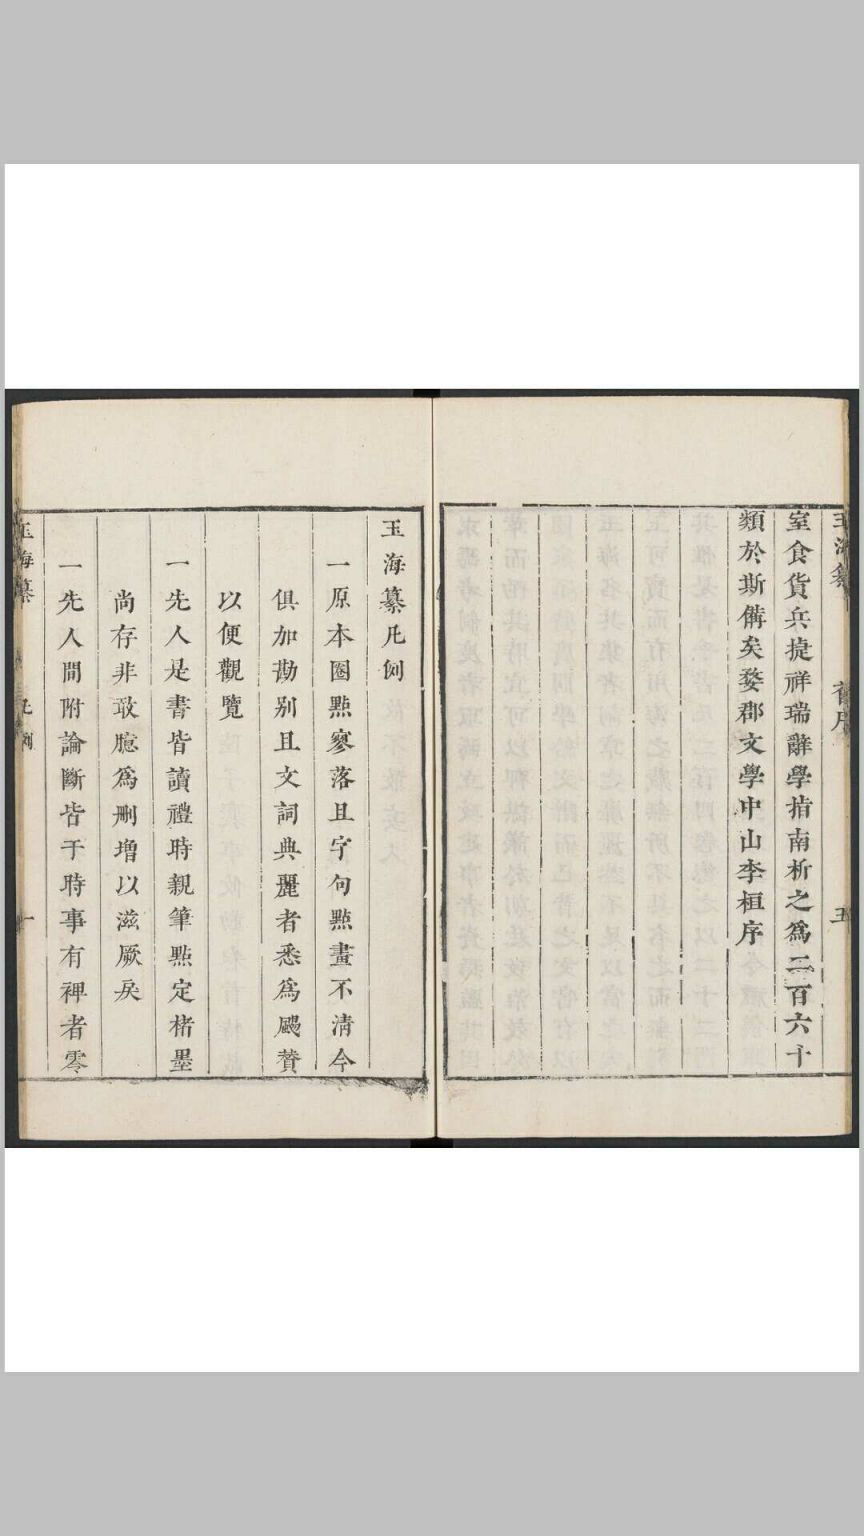 室食貨兵捷祥瑞辭學指南析之爲二百六十
類於斯備矣婺郡文學中山李桓序
玉海纂
舊序
五
玉海纂凡例
一原本圈點寥落且字句點畫不清今
俱加勘别且文詞典麗者悉爲䬙贊
以便觀覽
一先人是書皆讀禮時親筆點定楮墨
尚存非敢臆爲刪增以滋厥戾
一先人間附論斷皆于時事有裨者零
玉海纂
凡例
一